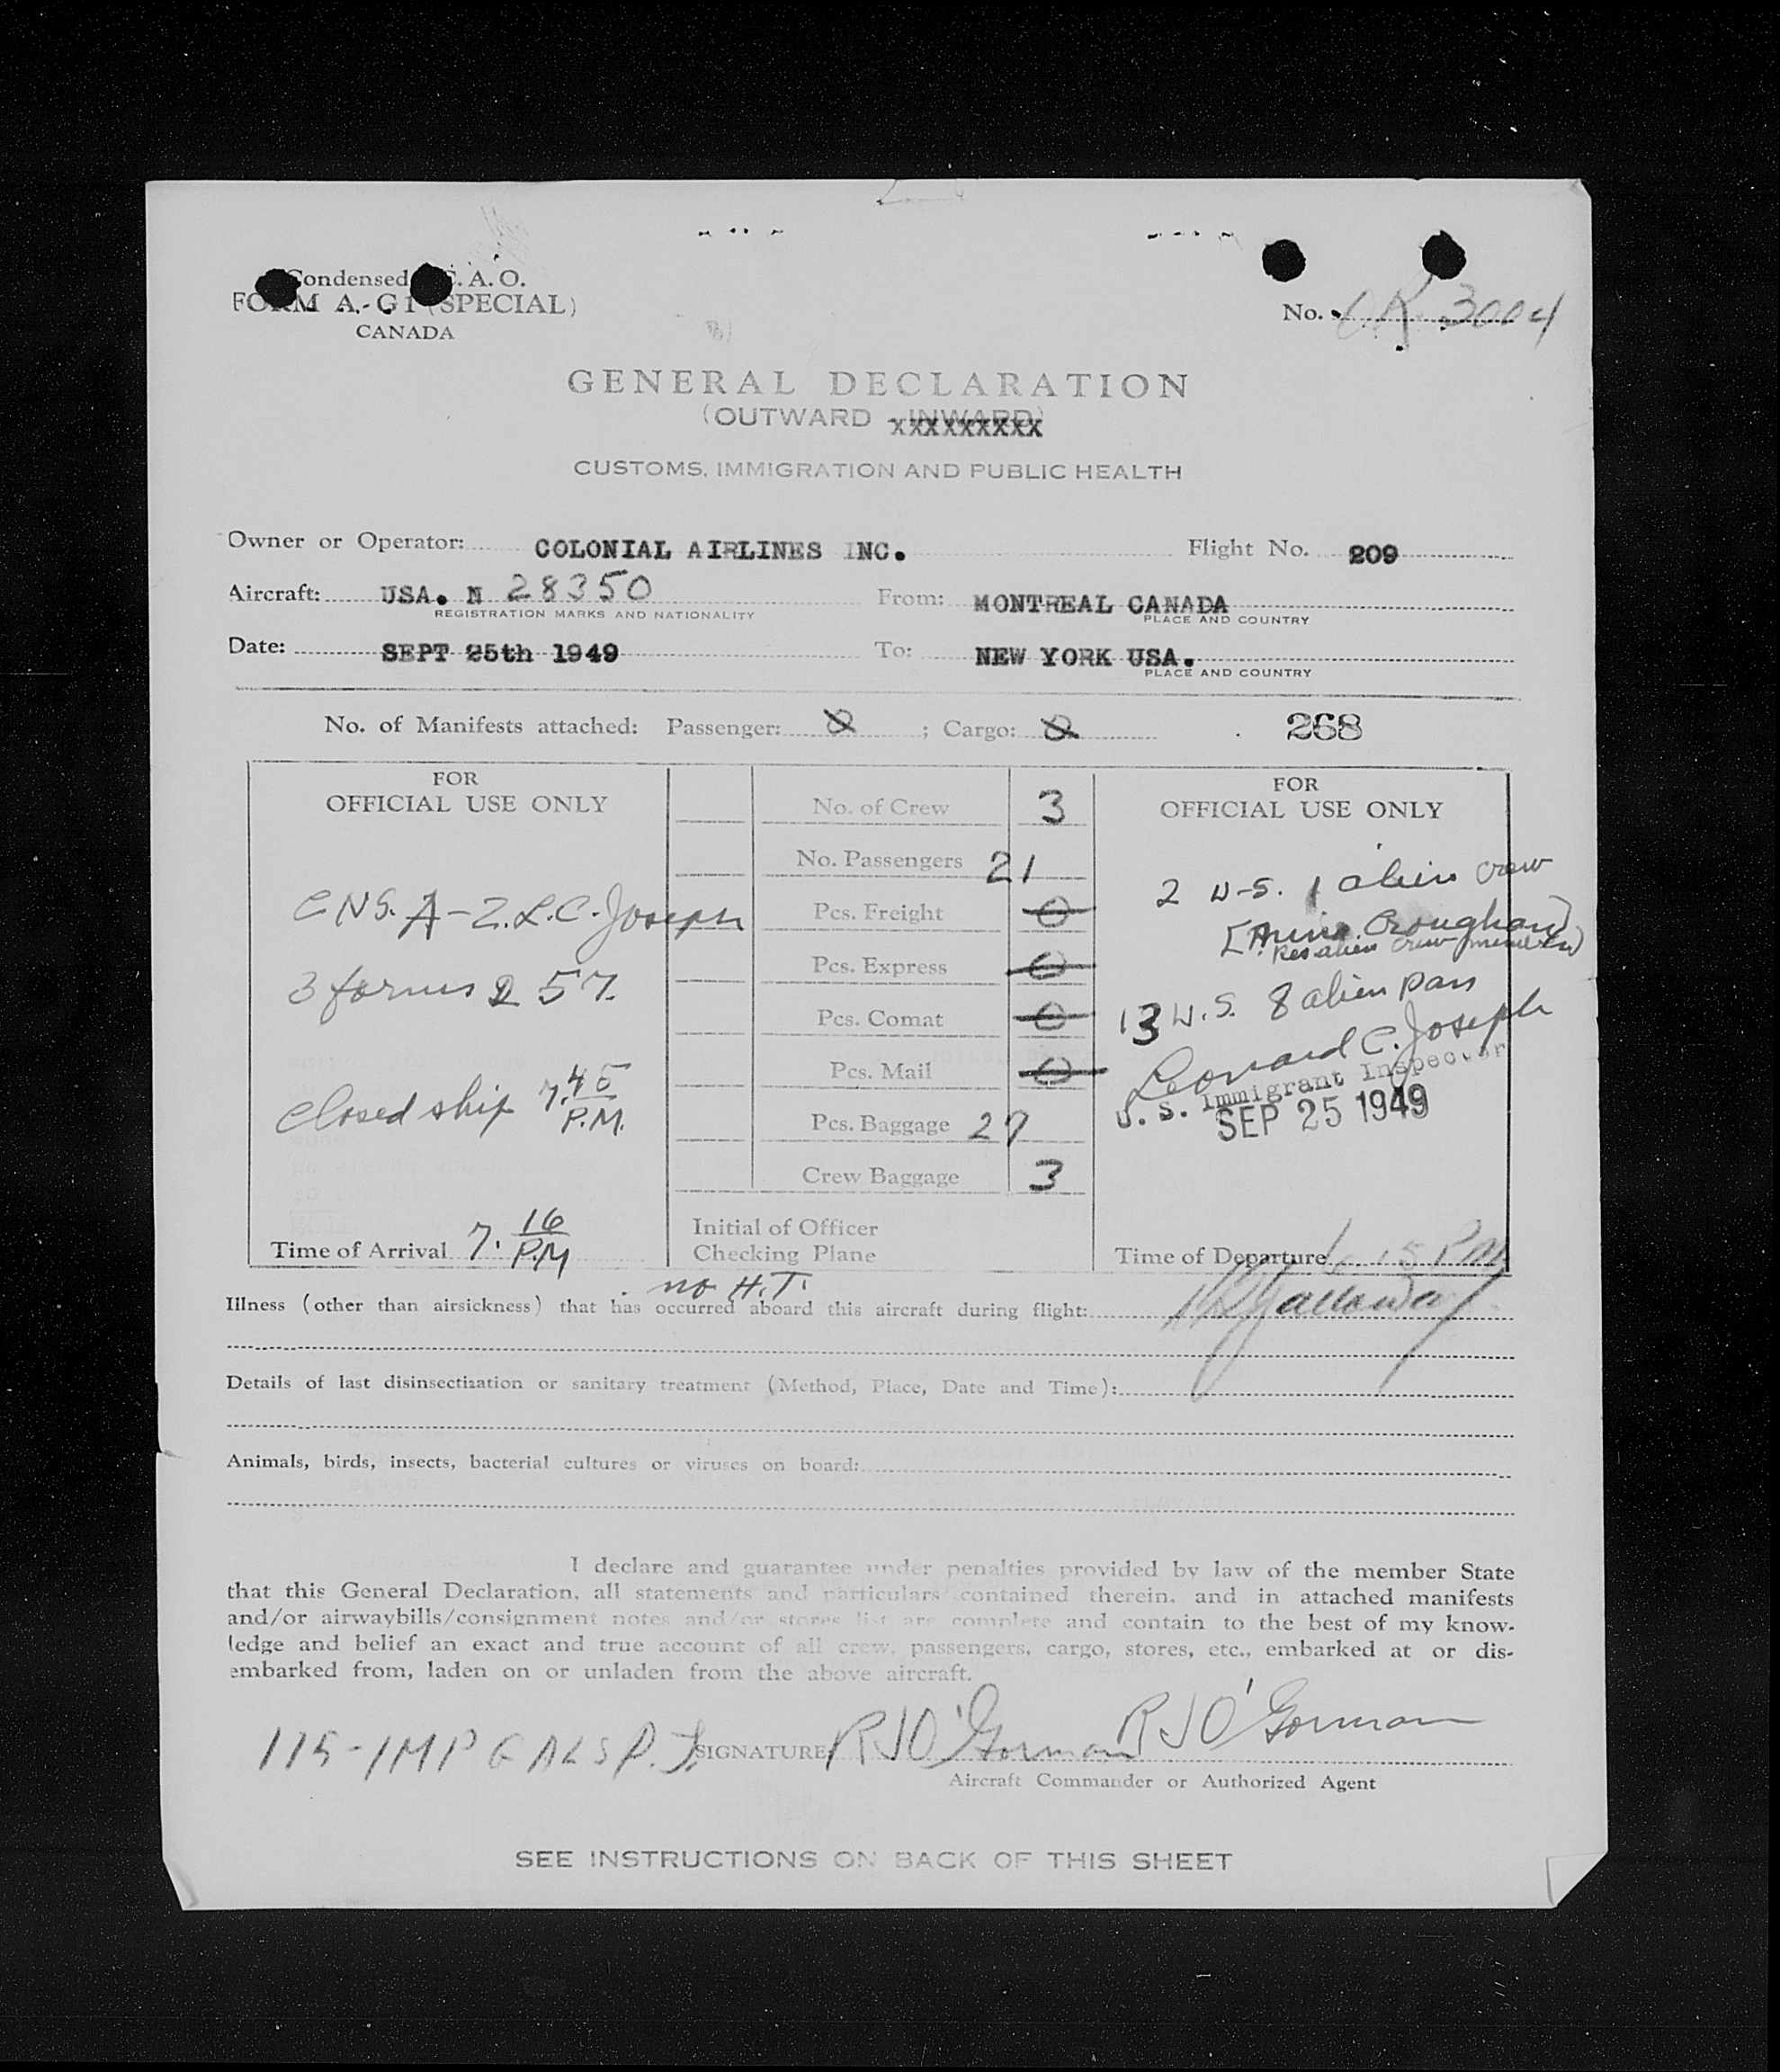 Condensed C. A. O.
FORM A.-G1 (SPECIAL)
CANADA
No. 3004
GENERAL DECLARATION
(OUTWARD - INWARD)
XXXXXXXXX
CUSTOMS, IMMIGRATION AND PUBLIC HEALTH
Owner or Operator: COLONIAL AIRLINES INC. Flight No. 209
Aircraft: USA. N 28350 From: MONTREAL CANADA
REGISTRATION MARKS AND NATIONALITY PLACE AND COUNTRY
Date: SEPT 25th 1949 To: NEW YORK USA.
PLACE AND COUNTRY
No. of Manifests attached: Passenger: 0 ; Cargo: 0 268
FOR
OFFICIAL USE ONLY
C NS. A-2. L. C. Joseph
3 forms 257.
Closed ship 7.45 P.M.
Time of Arrival 7. 16 P.M
No. of Crew 3
No. Passengers 21
Pcs. Freight 0
Pcs. Express 0
Pcs. Comat 0
Pcs. Mail 0
Pcs. Baggage 27
Crew Baggage 3
Initial of Officer
Checking Plane
FOR
OFFICIAL USE ONLY
2 U-S. 1 alien crew
[Croughan]
Res alien crew
13 U.S. 8 alien pass
Leonard C. Joseph
U. S. Immigrant Inspector
SEP 25 1949
Time of Departure
no H.T.
Illness (other than airsickness) that has occurred aboard this aircraft during flight: Galloway
Details of last disinsectization or sanitary treatment (Method, Place, Date and Time):
Animals, birds, insects, bacterial cultures or viruses on board:
I declare and guarantee under penalties provided by law of the member State
that this General Declaration, all statements and particulars contained therein, and in attached manifests
and/or airwaybills/consignment notes and/or stores list are complete and contain to the best of my know-
ledge and belief an exact and true account of all crew, passengers, cargo, stores, etc., embarked at or dis-
embarked from, laden on or unladen from the above aircraft.
115-IMP GALS P. SIGNATURE R J O'Gorman R J O'Gorman
Aircraft Commander or Authorized Agent
SEE INSTRUCTIONS ON BACK OF THIS SHEET